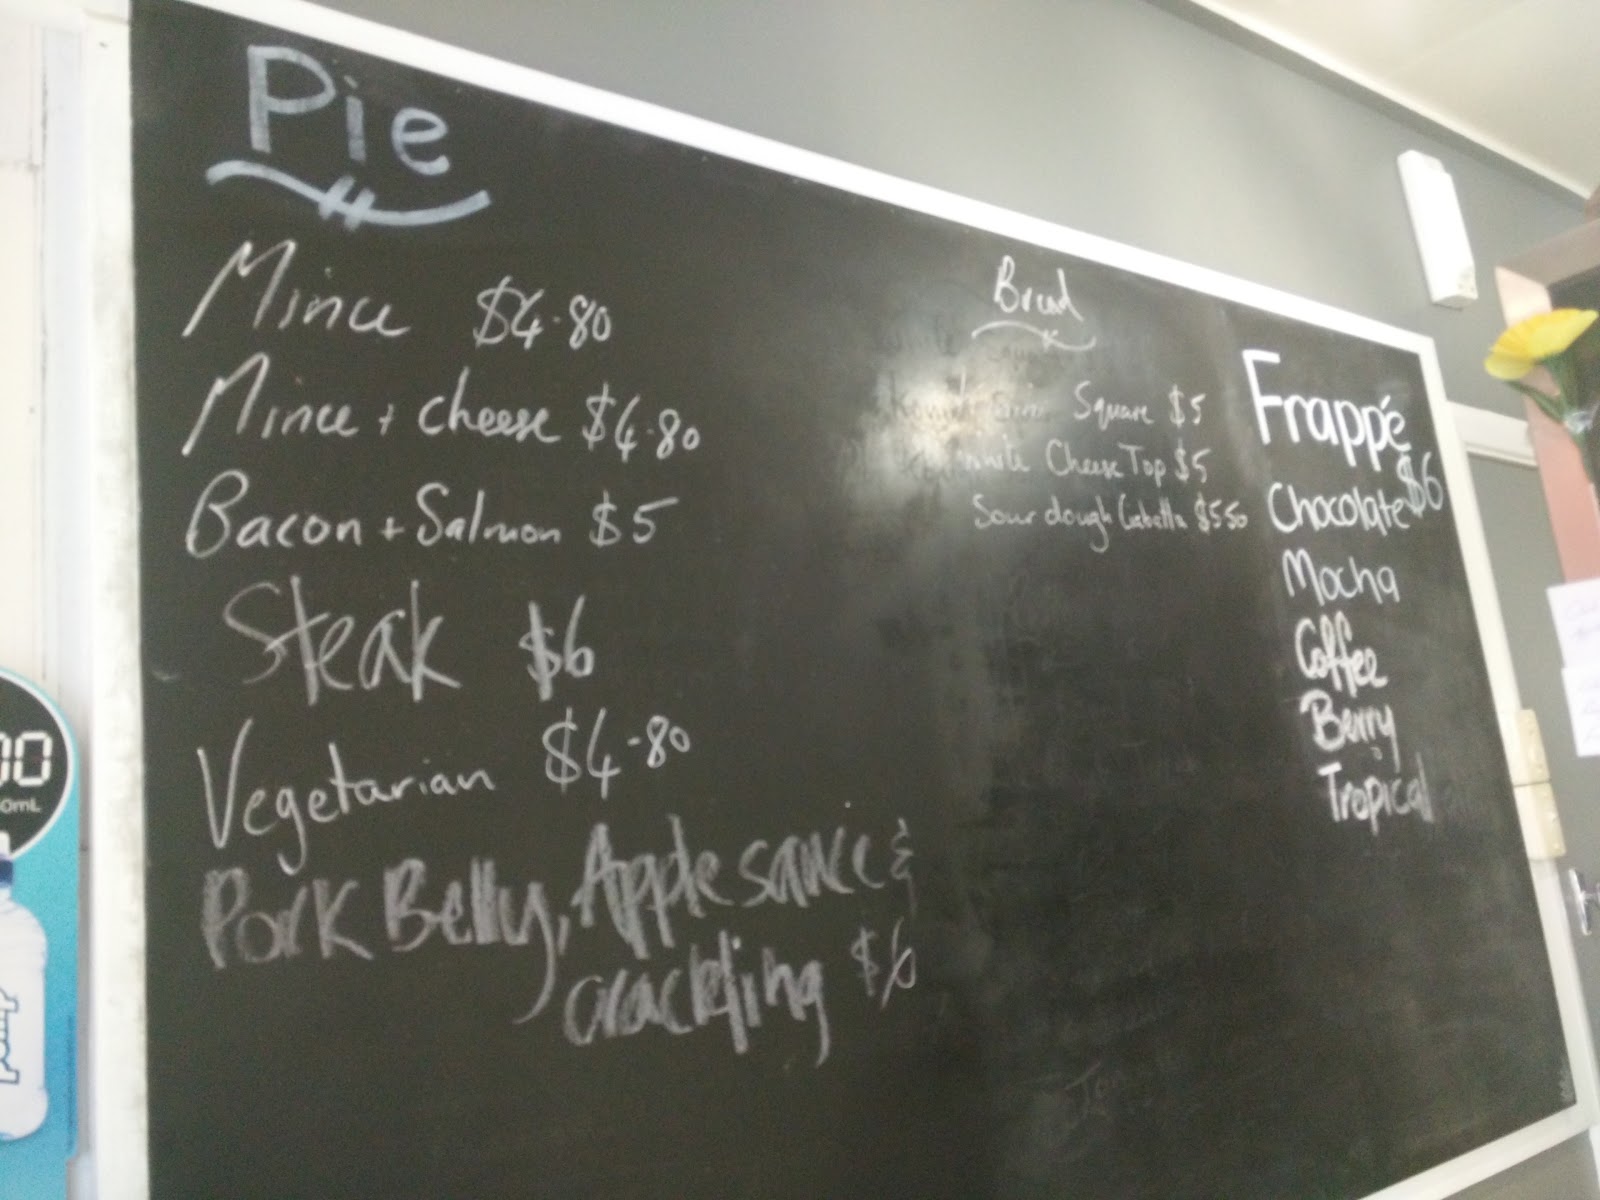 Pie
Mince $4.80
Mince + cheese $4.80
Bacon + Salmon $5
Steak $6
Vegetarian $4.80
Pork Belly, Apple sauce &
crackling $6
Bread
Square $5
Cheese Top $5
Sour dough $5.50
Frappé
$6
Chocolate
Mocha
Coffee
Berry
Tropical
00
0mL